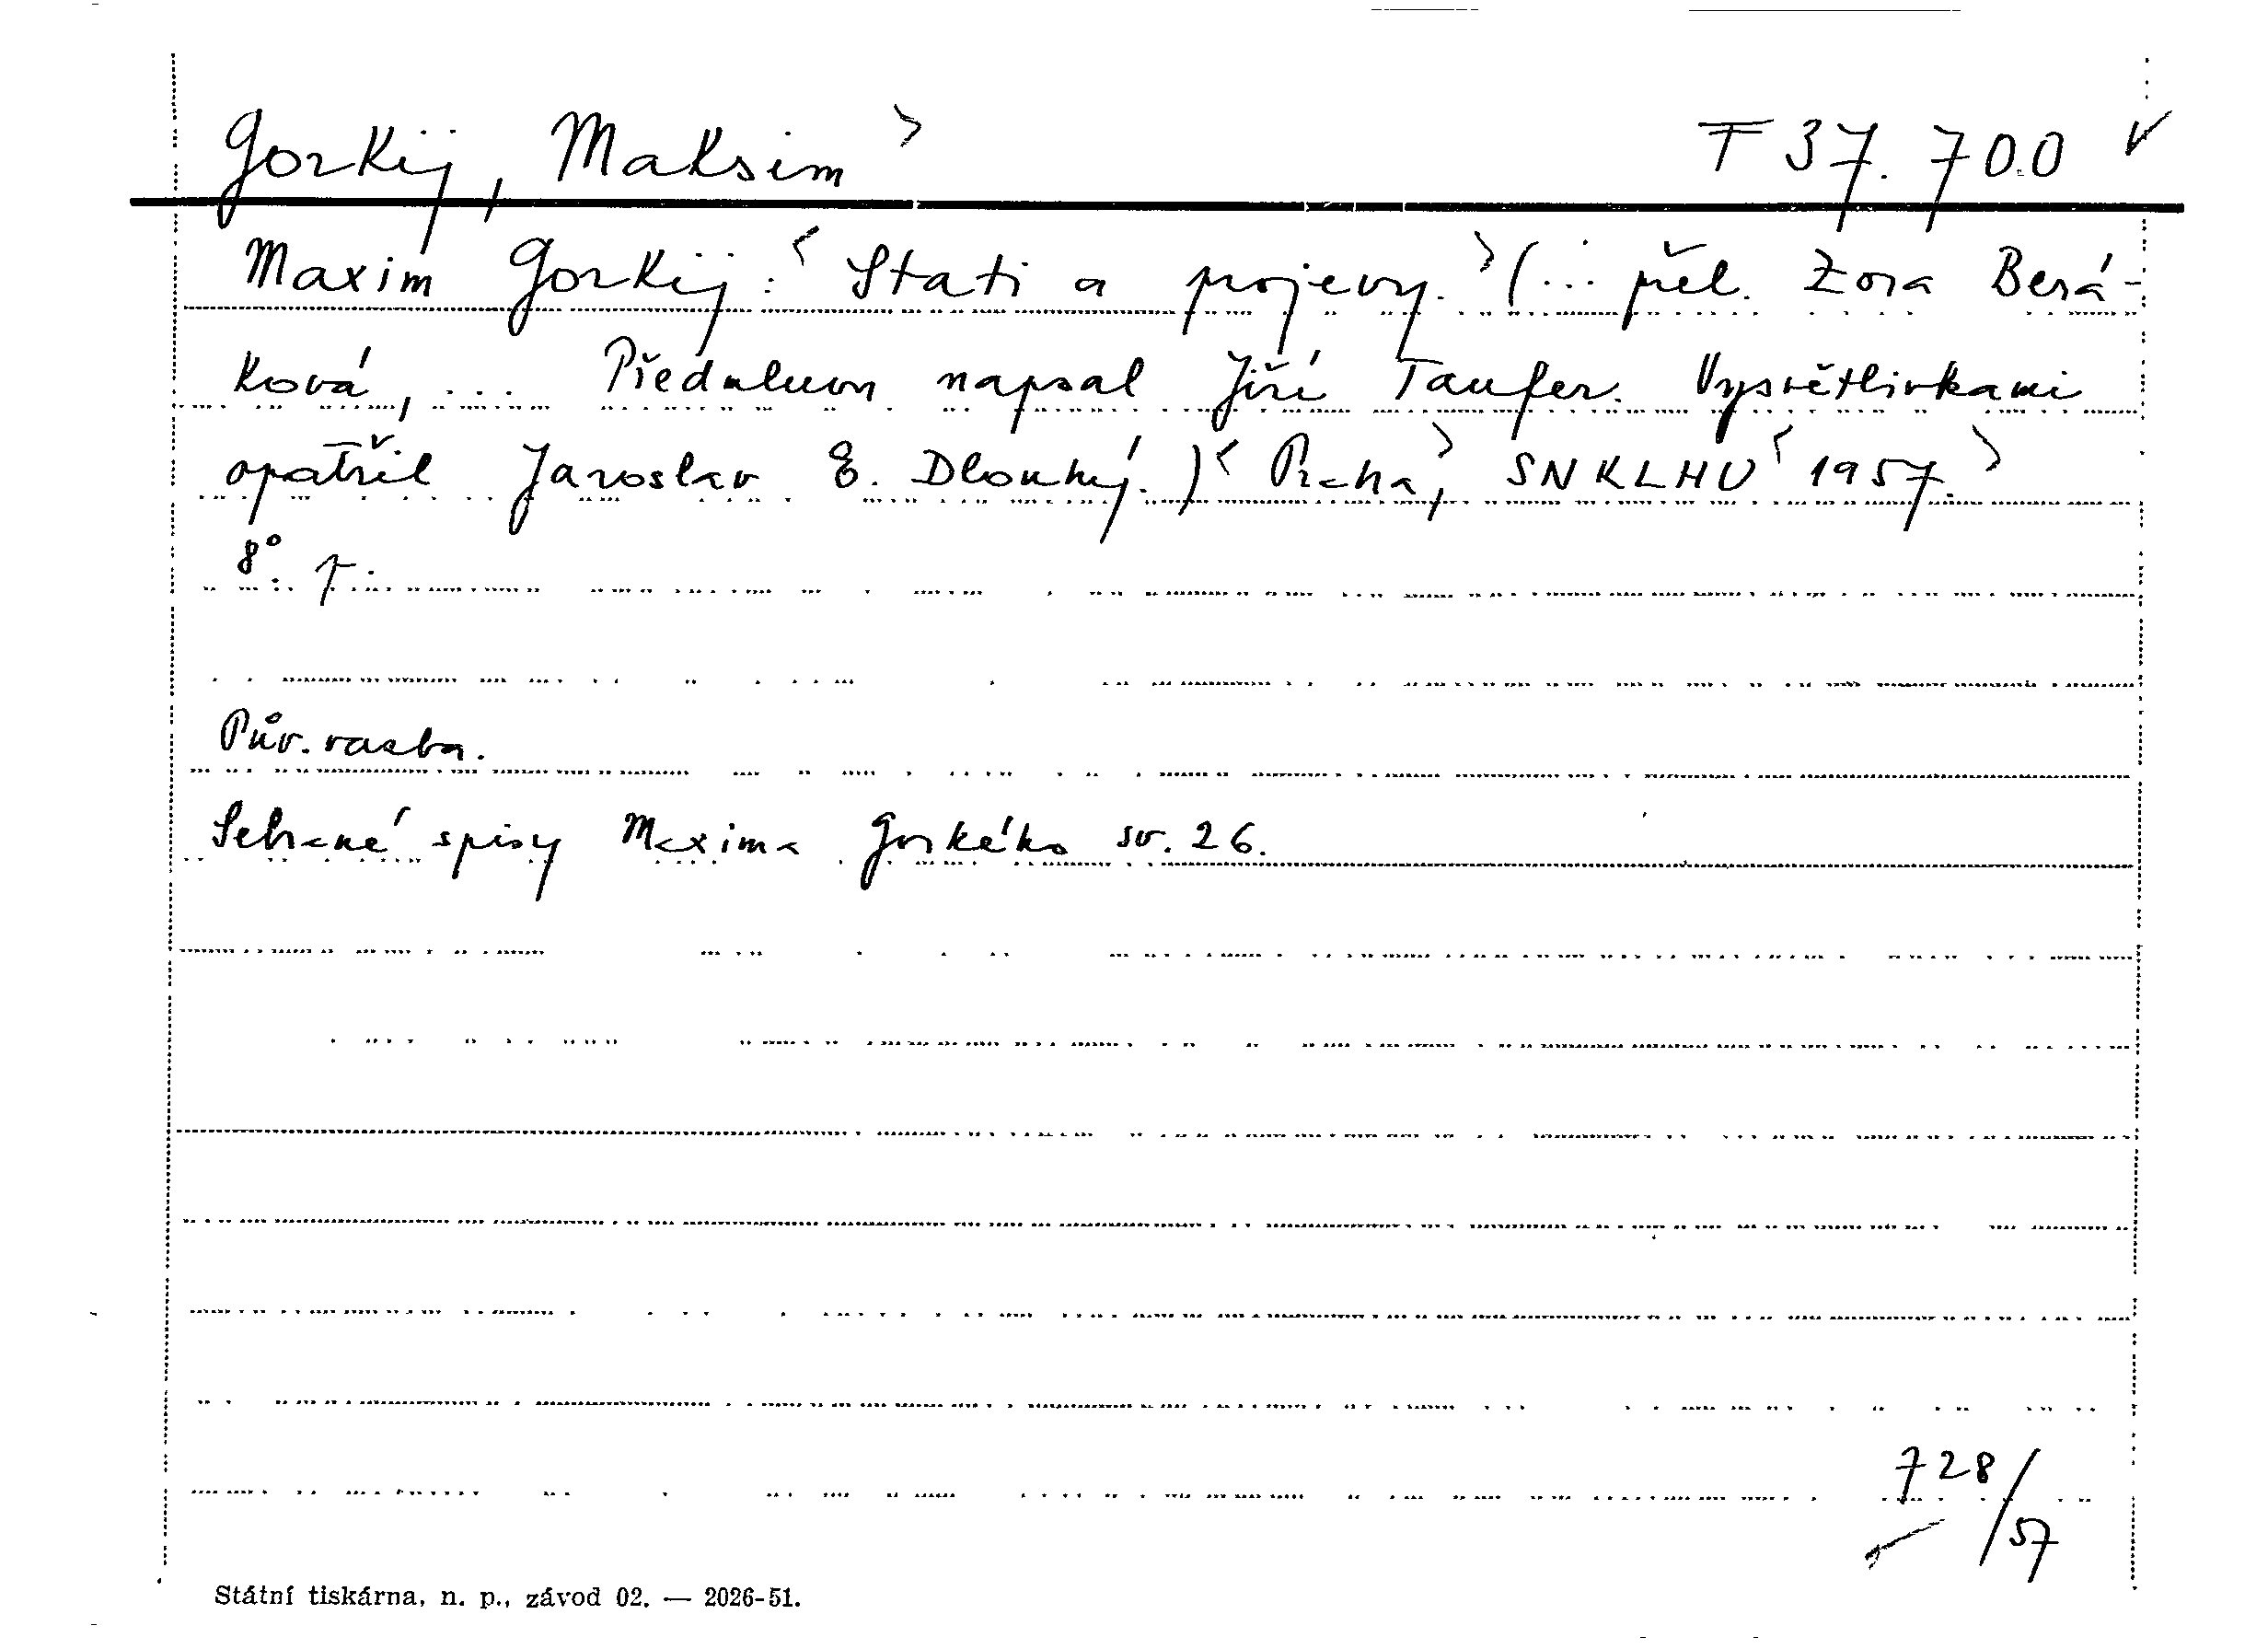 Gorkij, Maksim > T 37.700 √
Maxim Gorkij: < Stati a projevy. > (... přel. Zora Berá-
ková, ... Předmluvu napsal Jiří Taufer. Vysvětlivkami
opatřil Jaroslav E. Dlouhý.) < Praha, > SNKLHU < 1957. >
8°.
Pův. vazba.
Sebrané spisy Maxima Gorkého sv. 26.
728/57
Státní tiskárna, n. p., závod 02. — 2026-51.